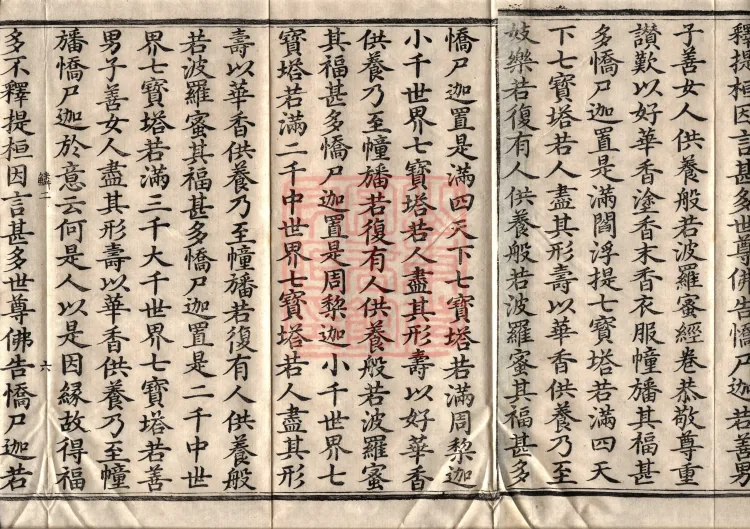 釋提桓因言甚多世尊佛告憍尸迦若善男
子善女人供養般若波羅蜜經卷恭敬尊重
讚歎以好華香塗香末香衣服幢旛其福甚
多憍尸迦置是滿閻浮提七寶塔若滿四天
下七寶塔若人盡其形壽以華香供養乃至
妓樂若復有人供養般若波羅蜜其福甚多
憍尸迦置是滿四天下七寶塔若滿周黎迦
小千世界七寶塔若人盡其形壽以好華香
供養乃至幢旛若復有人供養般若波羅蜜
其福甚多憍尸迦置是周黎迦小千世界七
寶塔若滿二千中世界七寶塔若人盡其形
壽以華香供養乃至幢旛若復有人供養般
若波羅蜜其福甚多憍尸迦置是二千中世
界七寶塔若滿三千大千世界七寶塔若善
男子善女人盡其形壽以華香供養乃至幢
旛憍尸迦於意云何是人以是因緣故得福
鱗二 六
多不釋提桓因言甚多世尊佛告憍尸迦若